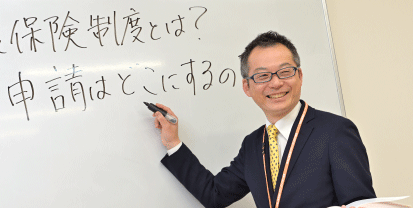 保険制度とは？
申請はどこにするの